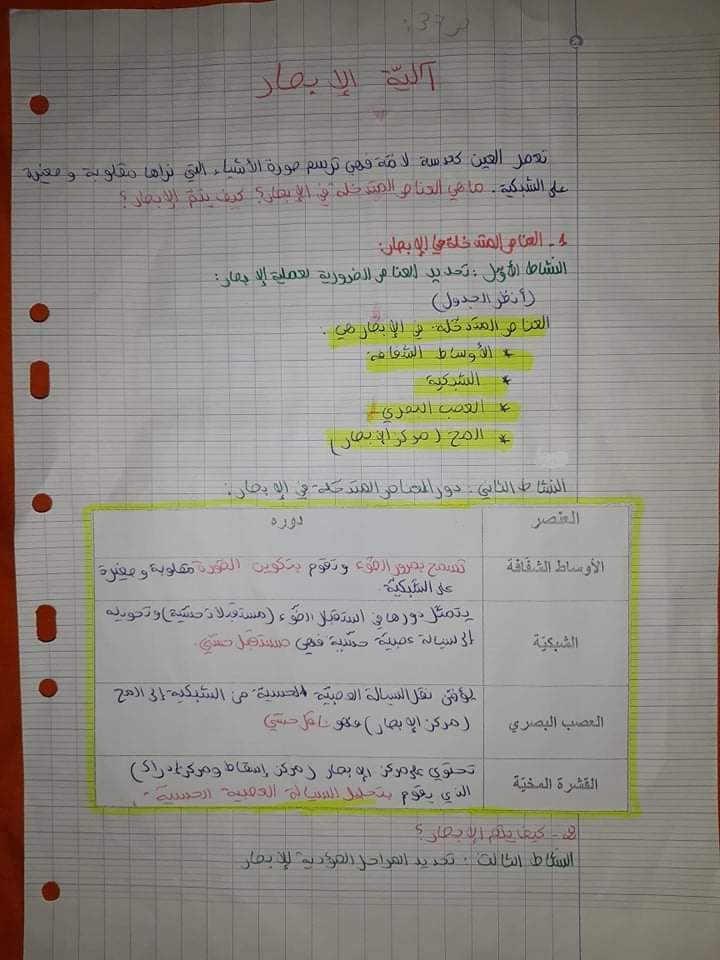 آليّة الإبصار
تعمل العين كعدسة لامّة فهي ترسم صورة الأشياء التي نراها مقلوبة و مصغرة
على الشبكية. ماهي العناصر المتدخلة في الإبصار؟ كيف يتمّ الإبصار؟
1- العناصر المتدخلة في الإبصار:
النشاط الأوّل: تحديد العناصر الضرورية لعملية الإبصار:
(أنظر الجدول)
العناصر المتدخّلة في الإبصار هي:
* الأوساط الشفافة
* الشبكية
* العصب البصري
* المخ (مركز الإبصار)
النشاط الثاني: دور العناصر المتدخلة في الإبصار:
العنصر دوره
الأوساط الشفّافة تسمح بمرور الضّوء وتقوم بتكوين الصّورة مقلوبة و مصغرة
على الشبكيّة.
الشبكيّة يتمثّل دورها في استقبال الضّوء (مستقبلات حسّيّة) وتحويله
إلى سيالة عصبيّة حسّيّة فهي مستقبل حسّي.
العصب البصري يؤمّن نقل السيالة العصبيّة الحسية من الشبكية إلى المخ
(مركز الإبصار) فهو ناقل حسّي
القشرة المخيّة تحتوي على مركز الإبصار (مركز إسقاط ومركز إدراك)
الذي يقوم بتحليل السيالة العصبية الحسية.
2- كيف يتم الإبصار؟
النشاط الثالث: تحديد المراحل المؤدية للإبصار